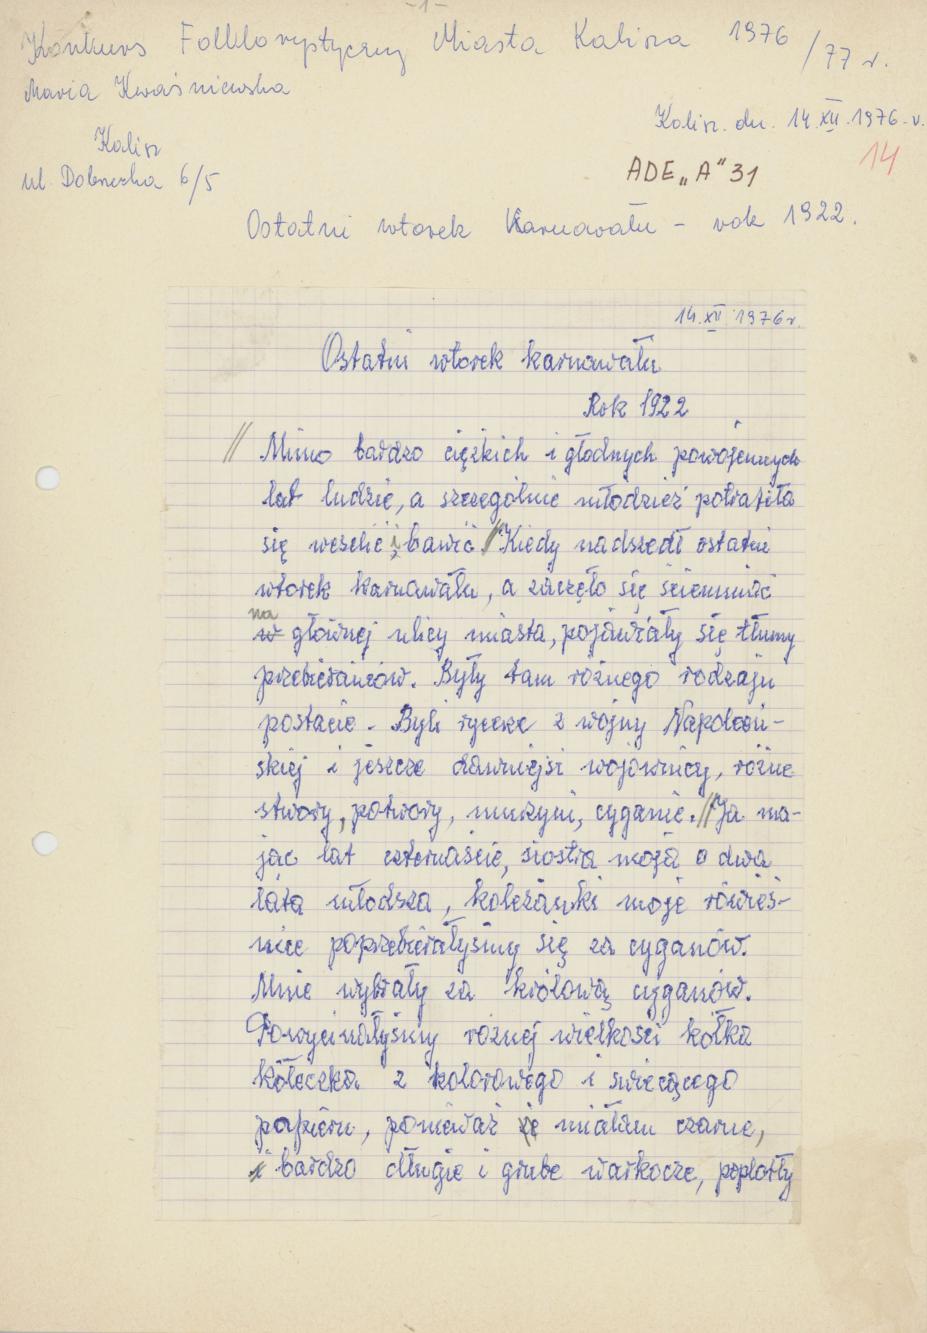 -1-
Konkurs Folklorystyczny Miasta Kalisza 1976/77 r.
Maria Kwaśniewska
Kalisz. dn. 14.XII.1976.r.
Kalisz
14
ul. Dobrzecka 6/5
ADE „A" 31
Ostatni wtorek Karnawału - rok 1922.
14.XII 1976r.
Ostatni wtorek karnawału
Rok 1922
// Mimo bardzo ciężkich i głodnych powojennych
lat ludzie, a szczególnie młodzież potrafiła
się weselić i bawić. // Kiedy nadszedł ostatni
wtorek karnawału, a zaczęło się ściemniać
na
w głównej ulicy miasta, pojawiały się tłumy
przebierańców. Były tam różnego rodzaju
postacie. Byli rycerze z wojny Napoleoń-
skiej i jeszcze dawniejsi wojownicy, różne
stwory, potwory, murzyni, cyganie. // Ja ma-
jąc lat czternaście, siostra moja o dwa
lata młodsza, koleżanki moje rówieś-
nice poprzebierałyśmy się za cyganów.
Mnie wybrały za królową cyganów.
Powycinałyśmy różnej wielkości kółka
kółeczka z kolorowego i świecącego
papieru, ponieważ miałam czarne,
i bardzo długie i grube warkocze, poplotły